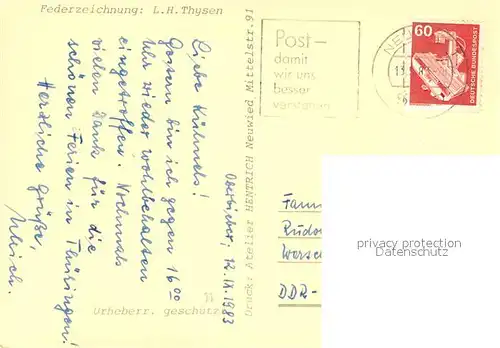 Federzeichnung: L.H.Thysen
Oberbieber, 12.IX.1983
Liebe Kühnels!
Gestern bin ich gegen 16 00
Uhr wieder wohlbehalten
eingetroffen. Nochmals
vielen Dank für die
schönen Ferien in Thüringen!
Herzliche Grüße,
Ulrich.
Urheberr. geschützt
11
Druck: Atelier HENTRICH Neuwied Mittelstr.91
Post-
damit
wir uns
besser
verstehen
60
DEUTSCHE BUNDESPOST
Fam
Rudo
DDR-
privacy protection
Datenschutz